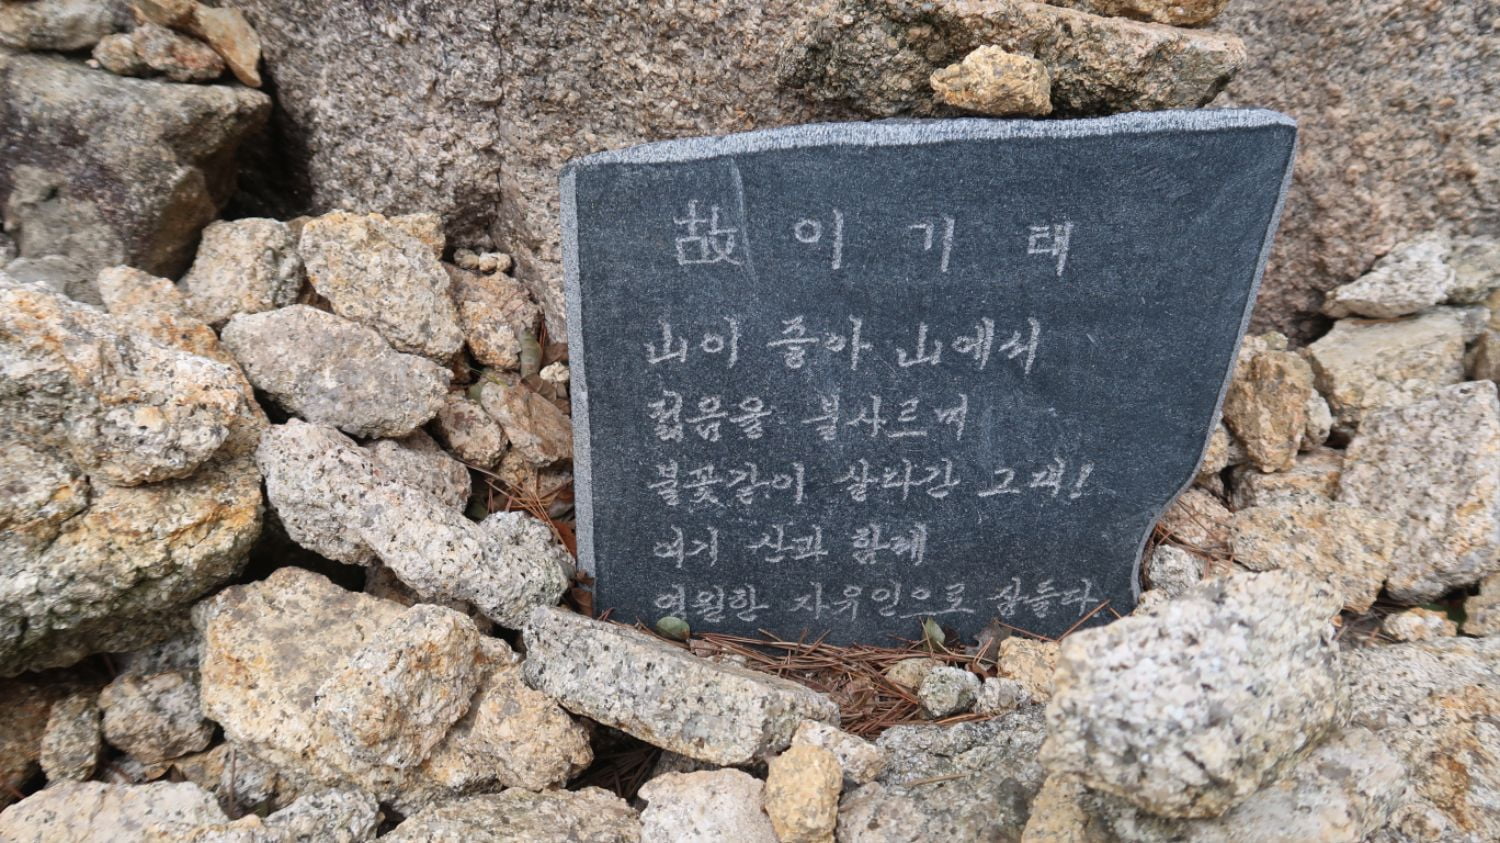 故 이 기 태
山이 좋아 山에서
젊음을 불사르며
불꽃같이 살다간 그대!
여기 산과 함께
영원한 자유인으로 잠들다